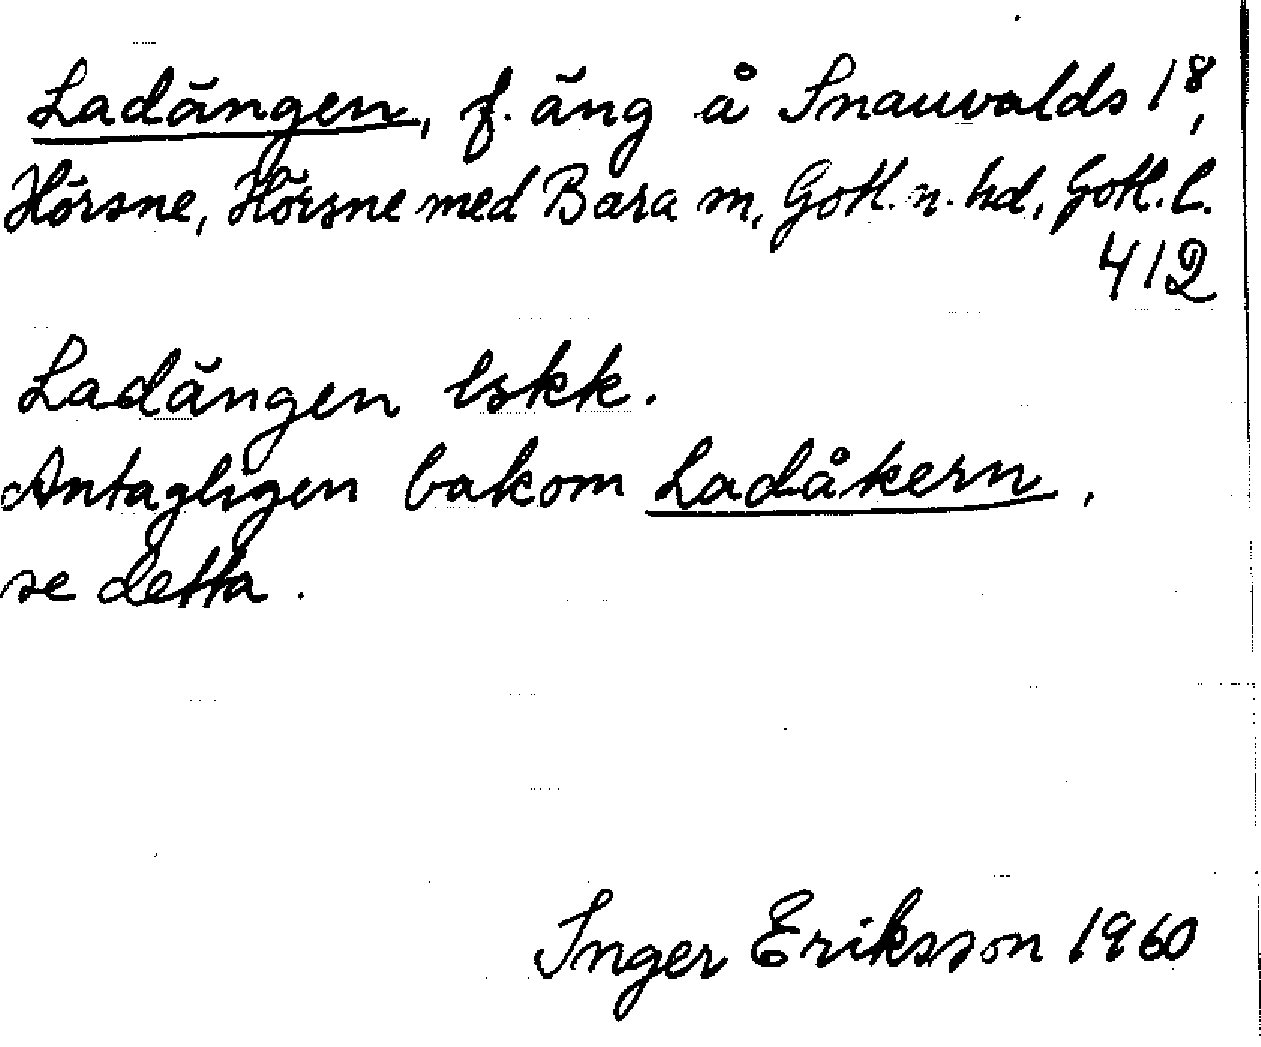 Ladängen, f. äng å Snauvalds 1⁸,
Hörsne, Hörsne med Bara m, Gotl. n. hd, Gotl. l.
412
Ladängen lskk.
Antagligen bakom Ladåkern,
se detta.
Inger Eriksson 1960